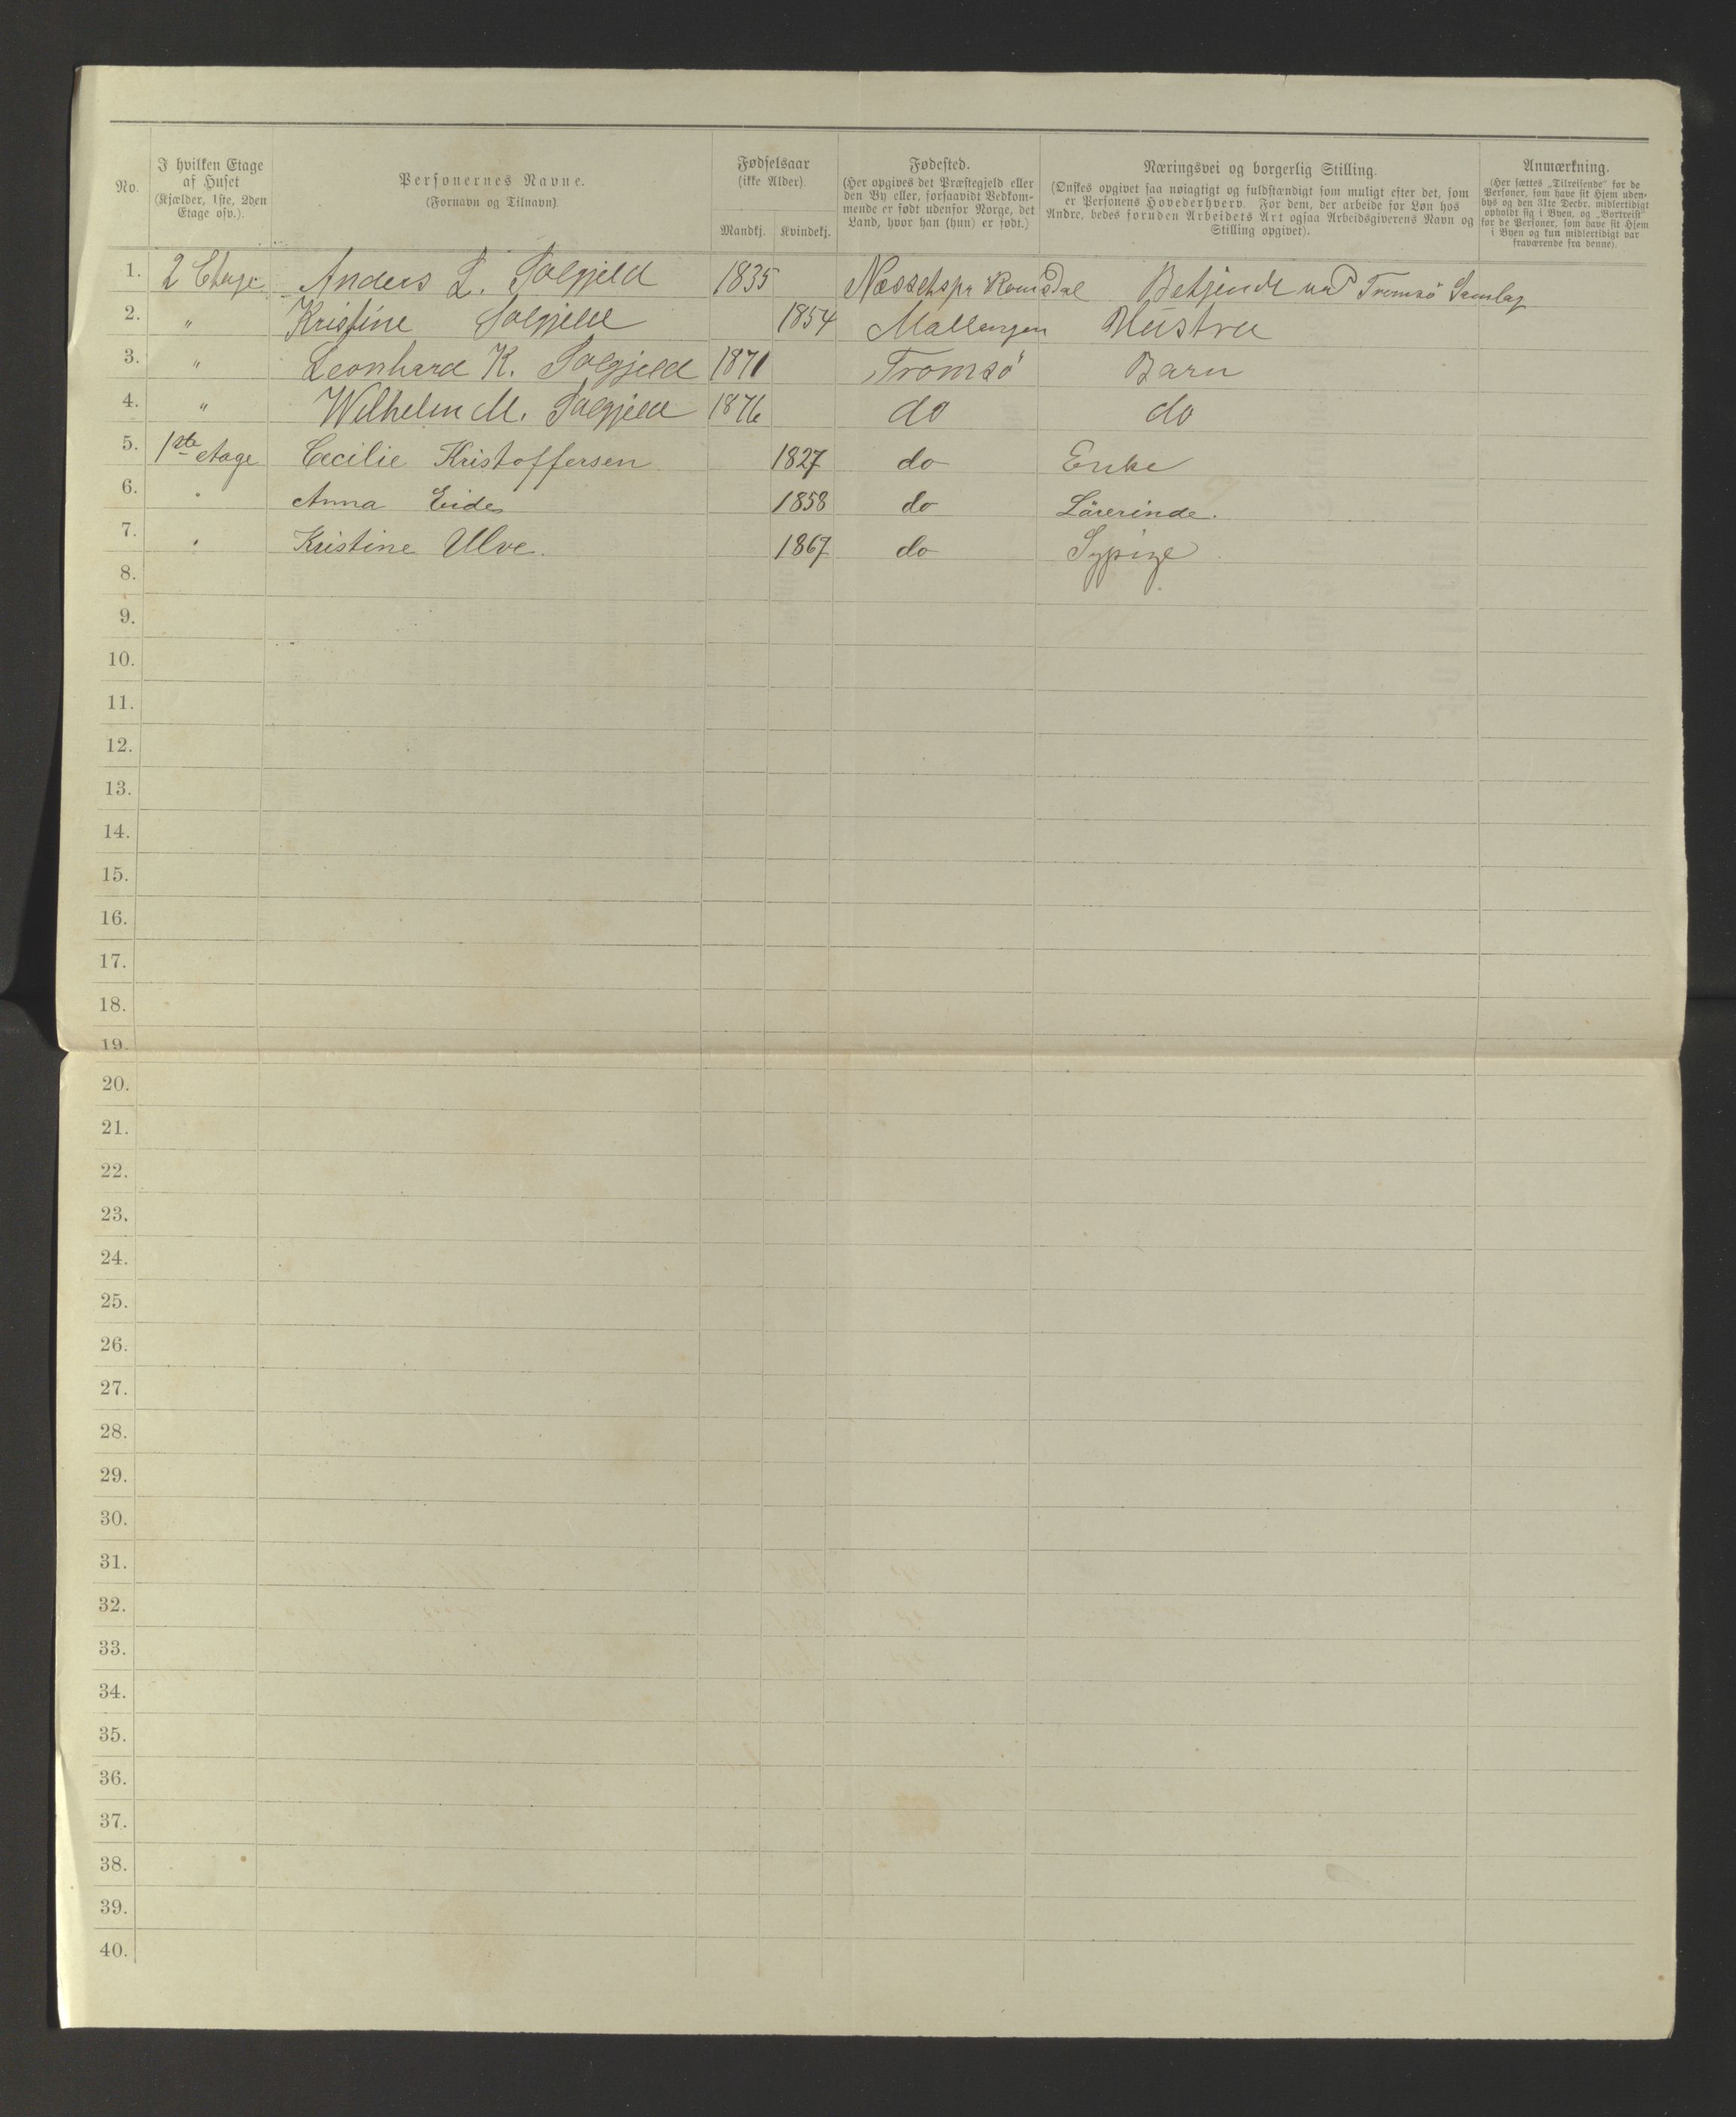 No. I hvilken Etage af Huset (Kjælder, 1ste, 2den Etage osv.). Personernes Navne. (Fornavn og Tilnavn) Fødselsaar (ikke Alder) Mandkj. Kvindekj. Fødested. (Her opgives det Præstegjeld eller den By eller, forsaavidt Vedkommende er født udenfor Norge, det Land, hvor han (hun) er født.) Næringsvei og borgerlig Stilling. (Ønskes opgivet saa nøiagtigt og fuldstændigt som muligt efter det, som er Personens Hovederhverv. For dem, der arbeide for Løn hos Andre, bedes foruden Arbeidets Art ogsaa Arbeidsgiverens Navn og Stilling opgivet). Anmærkning. (Her sættes „Tilreisende" for de Personer, som have sit Hjem udenbys og den 31te Decbr. midlertidigt opholdt sig i Byen, og „Bortreist" for de Personer, som have sit Hjem i Byen og kun midlertidigt var fraværende fra denne).
1. 2 Etage Anders L. Solgjeld 1835 Næssetspr Romsdal Betjendt ved Tromsö Samlag
2. " Kristine Solgjeld 1854 Mallangen Hustru
3. " Leonhard K. Solgjeld 1871 Tromsö Barn
4. " Wilhelm M. Solgjeld 1876 do do
5. 1ste etage Cecilie Kristoffersen 1827 do Enke
6. " Anna Eide 1858 do Lärerinde.
7. " Kristine Ulve. 1867 do Sypige
8.
9.
10.
11.
12.
13.
14.
15.
16.
17.
18.
19.
20.
21.
22.
23.
24.
25.
26.
27.
28.
29.
30.
31.
32.
33.
34.
35.
36.
37.
38.
39.
40.